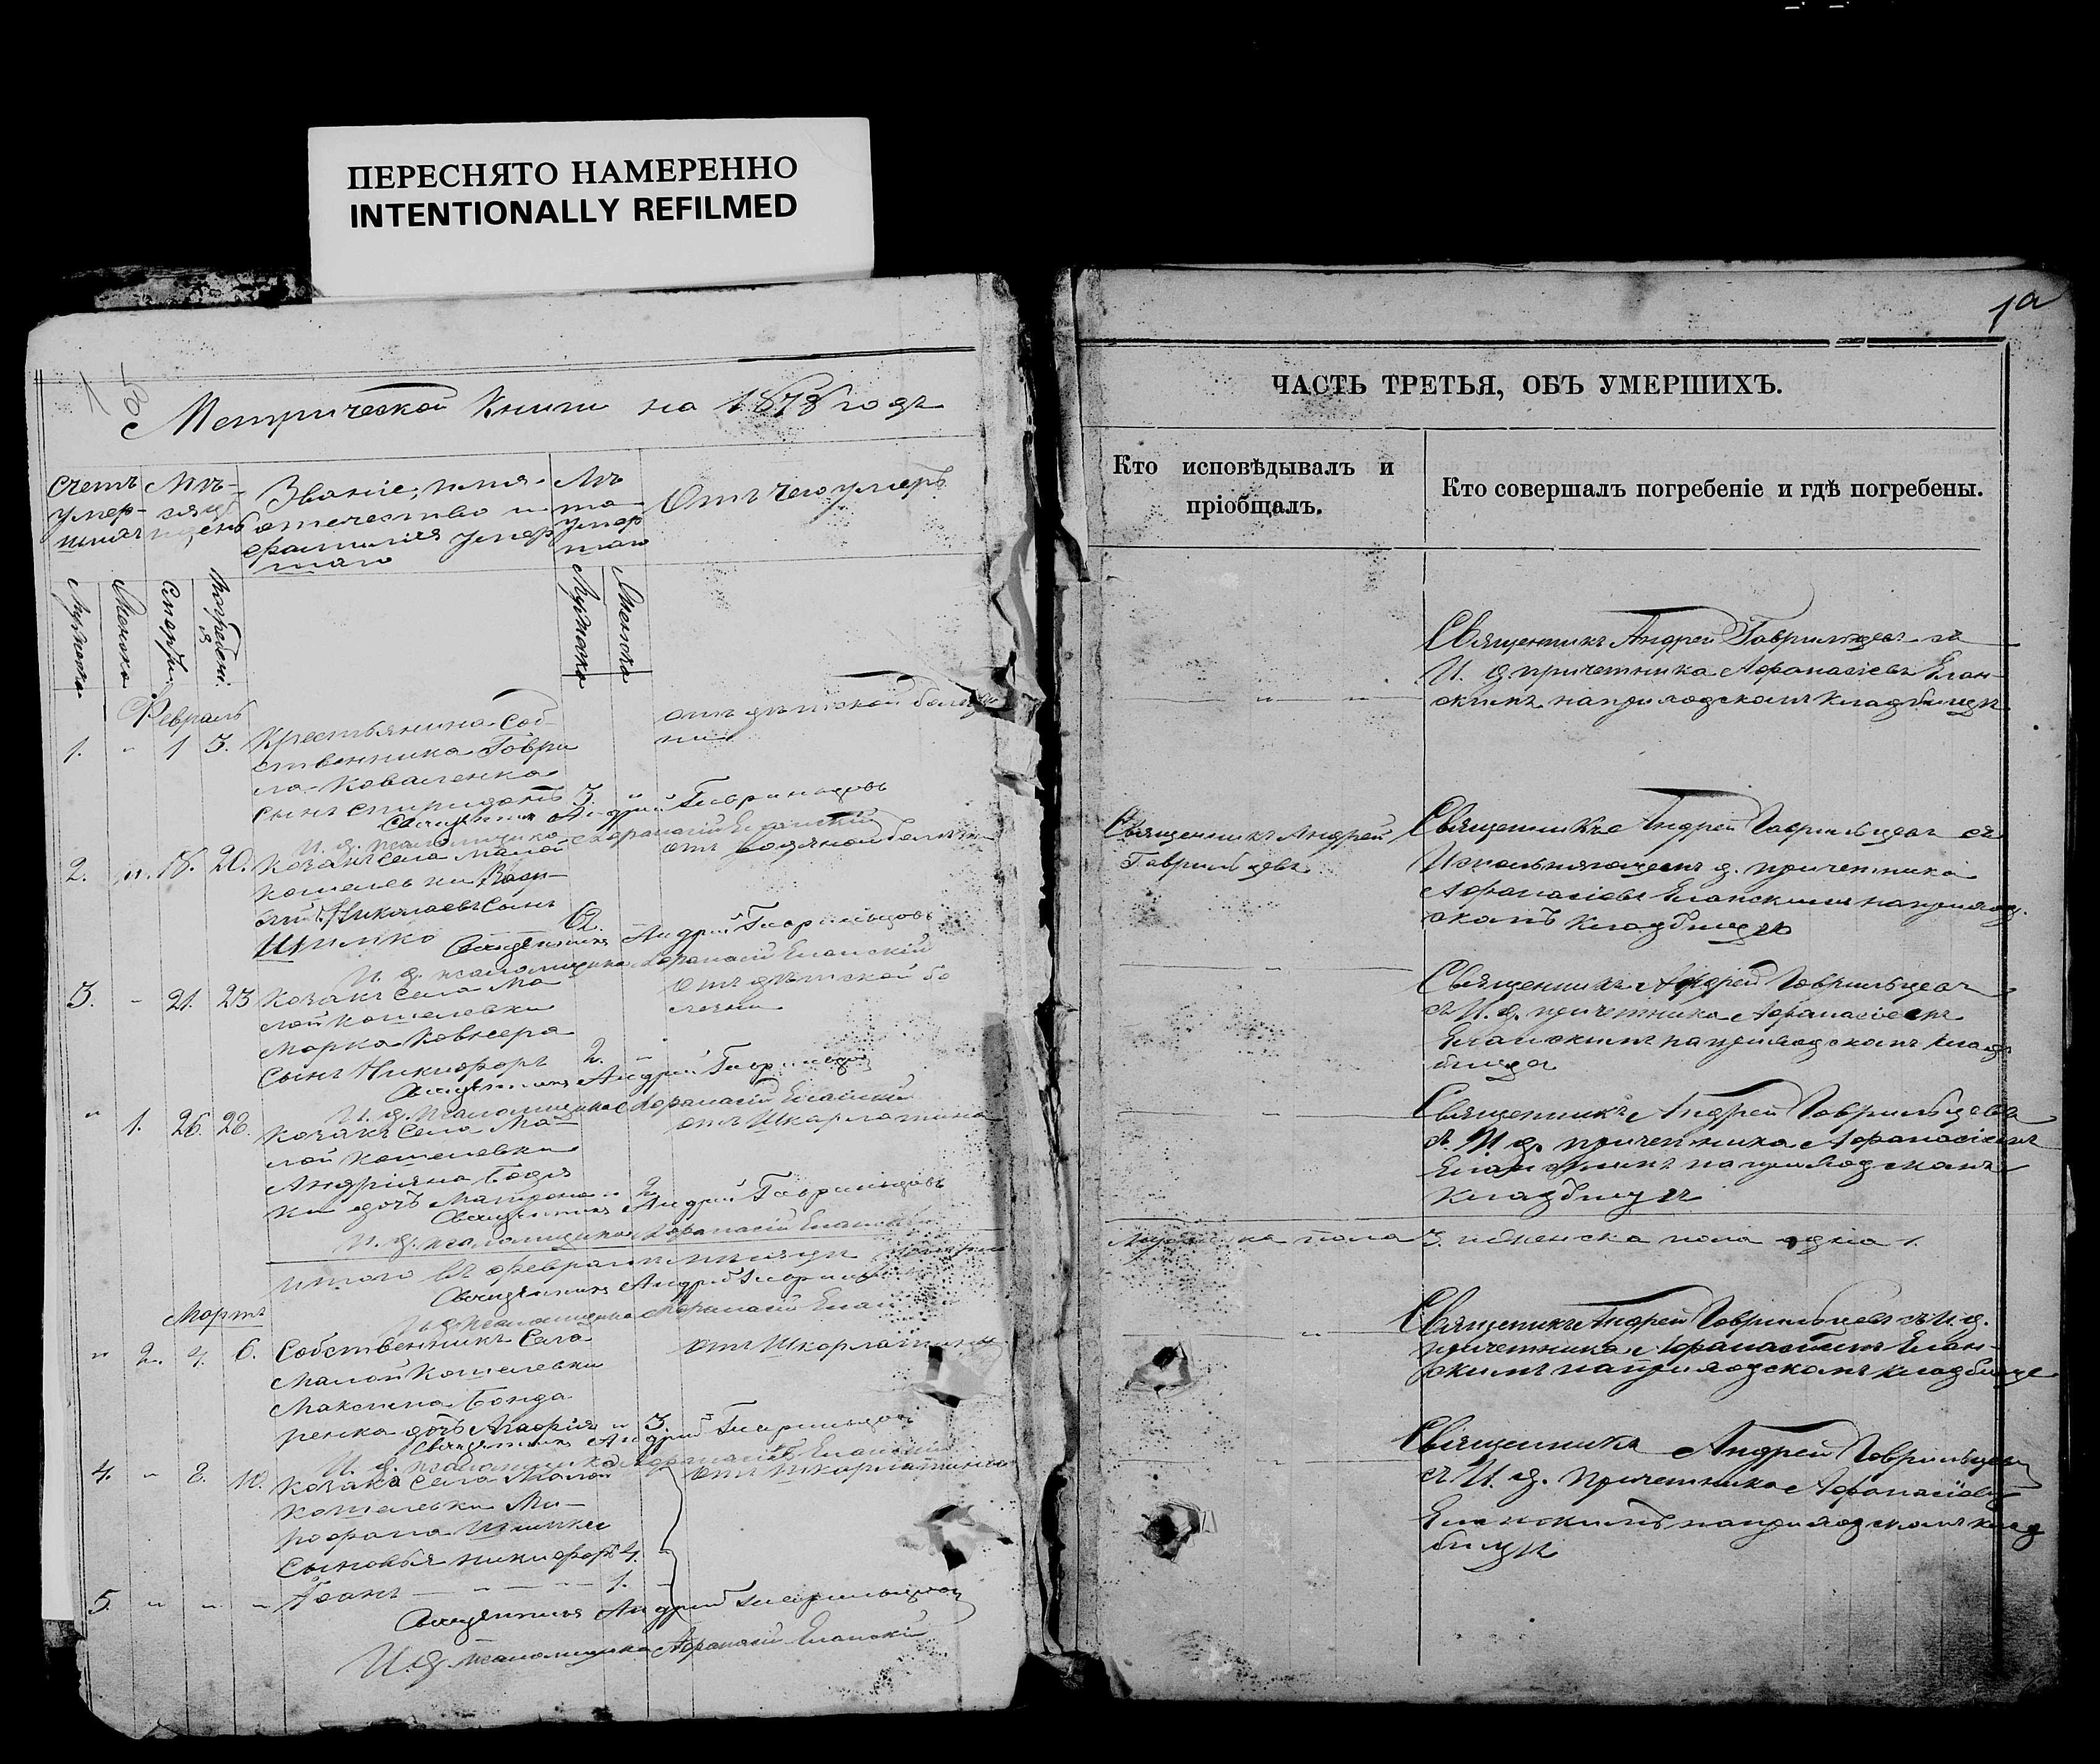 ПЕРЕСНЯТО НАМЕРЕННО
INTENTIONALLY REFILMED
Метрической Книги на 1878 годъ
Счетъ
умер-
шихъ
Мѣ-
сяцъ
и день
Званіе, имя
отечество и
фамилія умер
шаго
Лѣ
та
умер
шаго
Отъ чего умеръ
Мужска
Женска
Смерти
Погребені
я
Мужска
Женска
Февраль
1. " 1 3. Крестьянина Соб-
ственника Гаври
ла Коваленка
сынъ Спиридонъ 3. "
отъ дѣтской болѣз
ни
Священникъ Андрей Гаврильцовъ
И. д. псаломщика Афанасій Еланскій
2. ". 18. 20. Козакъ села Малой
Кошелевки Васи-
лій Николаевъ сынъ
Шимко 62.
отъ водяной болѣзни
Священникъ Андрей Гаврильцовъ
И. д. псаломщика Афанасій Еланскій
3. - 21. 23 Козакъ села Ма
лой Кошелевки
Марка
сынъ Никифоръ 2. "
отъ дѣтской бо
лезни
Священникъ Андрей Гаврильцовъ
И. д. псаломщика Афанасій Еланскій
" 1. 26. 28. Козакъ села Ма-
лой Кошелевки
Андріяна
дочь Матрона " 2
отъ Шкарлатина
Священникъ Андрей Гаврильцовъ
И. д. псаломщика Афанасій Еланскій
итого въ феврали мѣсяцѣ
Священникъ Андрей Гаврильцовъ
И. д. псаломщика Афанасій
Мартъ
" 2. 4. 6. Собственникъ села
Малой Кошелевки
Максима Бонда
ренка дочь Агафія " 3.
отъ Шкарлатины
Священникъ Андрей Гаврильцовъ
И. д. псаломщика Афанасій Еланскій
4. " 8. 10. Козака села Малой
Кошелевки Ми-
трофана Шимки
сыновья Никифоръ 4. -
отъ Шкарлатины
5. " " " Іоанъ 1. -
Священникъ Андрей Гаврильцовъ
И. д. псаломщика Афанасій Еланскій
1а
ЧАСТЬ ТРЕТЬЯ, ОБЪ УМЕРШИХЪ.
Кто исповѣдывалъ и
пріобщалъ.
Кто совершалъ погребеніе и гдѣ погребены.
Священникъ Андрей Гаврильцевъ съ
И. д. причетника Афанасіевъ Елан-
скимъ на приходскомъ кладбищѣ
Священникъ Андрей
Гаврильцевъ
Священникъ Андрей Гаврильцевъ съ
Исполняющемъ д. причетника
Афанасіевъ Еланскимъ на приход-
скомъ кладбищѣ
Священникъ Андрей Гаврильцевъ
съ И. д. причетника Афанасіемъ
Еланскимъ на приходскомъ клад
бищѣ
Священникъ Андрей Гаврильцевъ
съ И. д. причетника Афанасіемъ
Еланскимъ на приходскомъ
кладбищѣ
Мужеска пола 3. и женска пола одна 1.
Священикъ Андрей Гаврильцевъ съ И. д.
причетника Афанасіемъ Елан-
скимъ на приходскомъ кладбище
Священника Андрей Гаврильцевъ
съ И. д. причетника Афанасіевъ
Еланскимъ на приходскомъ клад
бищѣ